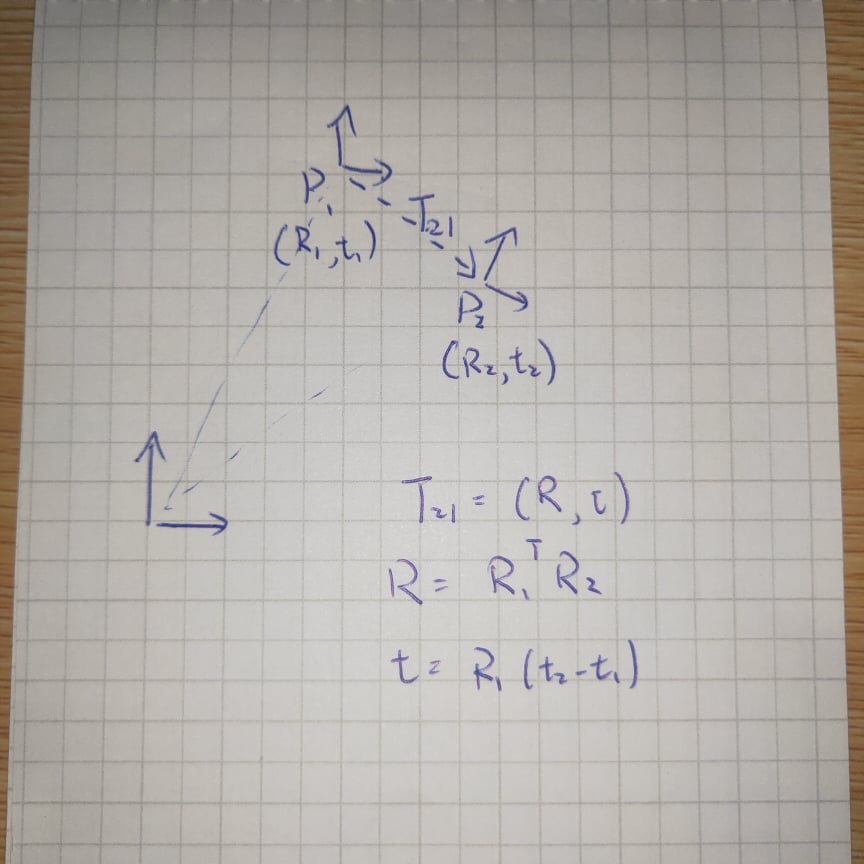 P₁
(R₁, t₁)
T₂₁
P₂
(R₂, t₂)
T₂₁ = (R, t)
R = R₁ᵀ R₂
t = R₁ (t₂ - t₁)